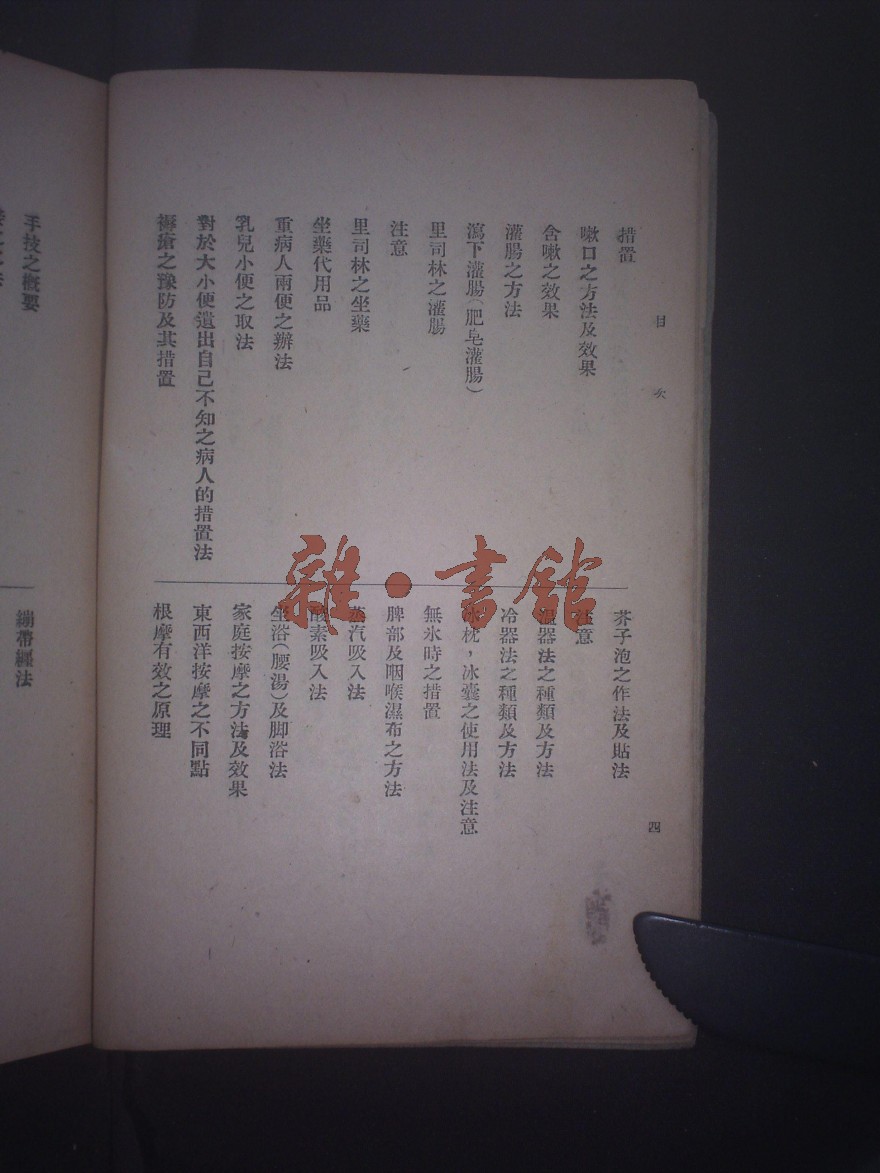 目次
四
措置
嗽口之方法及效果
含嗽之效果
灌腸之方法
瀉下灌腸(肥皂灌腸)
里司林之灌腸
注意
里司林之坐藥
坐藥代用品
重病人兩便之辦法
乳兒小便之取法
對於大小便遺出自己不知之病人的措置法
褥瘡之豫防及其措置
芥子泡之作法及貼法
注意
溫器法之種類及方法
冷器法之種類及方法
冰枕，冰囊之使用法及注意
無氷時之措置
脾部及咽喉濕布之方法
蒸汽吸入法
酸素吸入法
坐浴(腰湯)及脚浴法
家庭按摩之方法及效果
東西洋按摩之不同點
根摩有效之原理
手技之概要
繃帶纏法
雜·書館